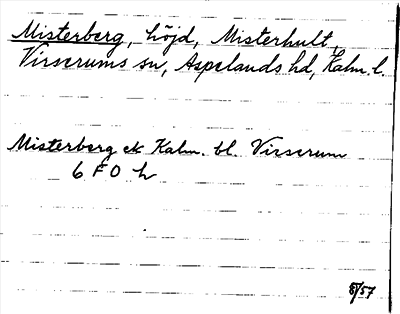 Misterberg, höjd, Misterhult,
Virserums sn, Aspelands hd, Kalm. l.
Misterberg ek Kalm. bl. Virserum
6 F 0 h
8/57